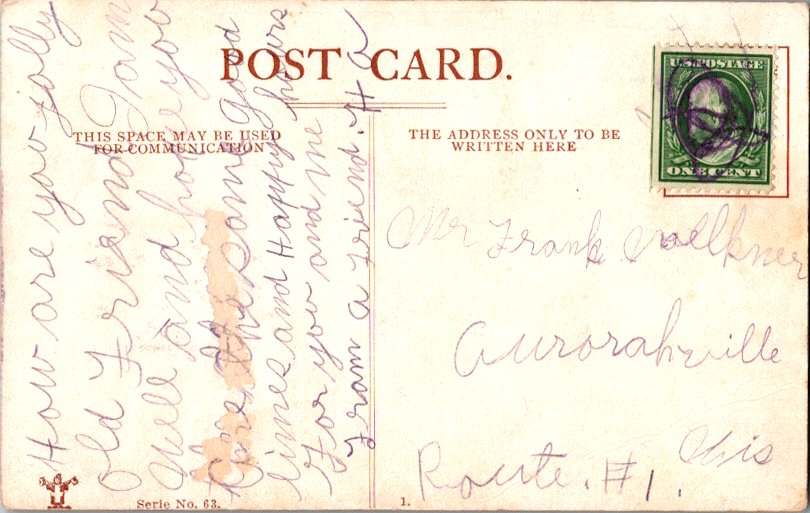 POST CARD.
THIS SPACE MAY BE USED
FOR COMMUNICATION
THE ADDRESS ONLY TO BE
WRITTEN HERE
U.S. POSTAGE
ONE CENT
How are you jolly
Old Friand I am
Well and hope you
are the same good
times and Happy hours
For you and me
Fram a Friend. H a
Mr Frank Faelkner
Aurorahville
Wis
Route. #1.
Serie No. 63.
1.